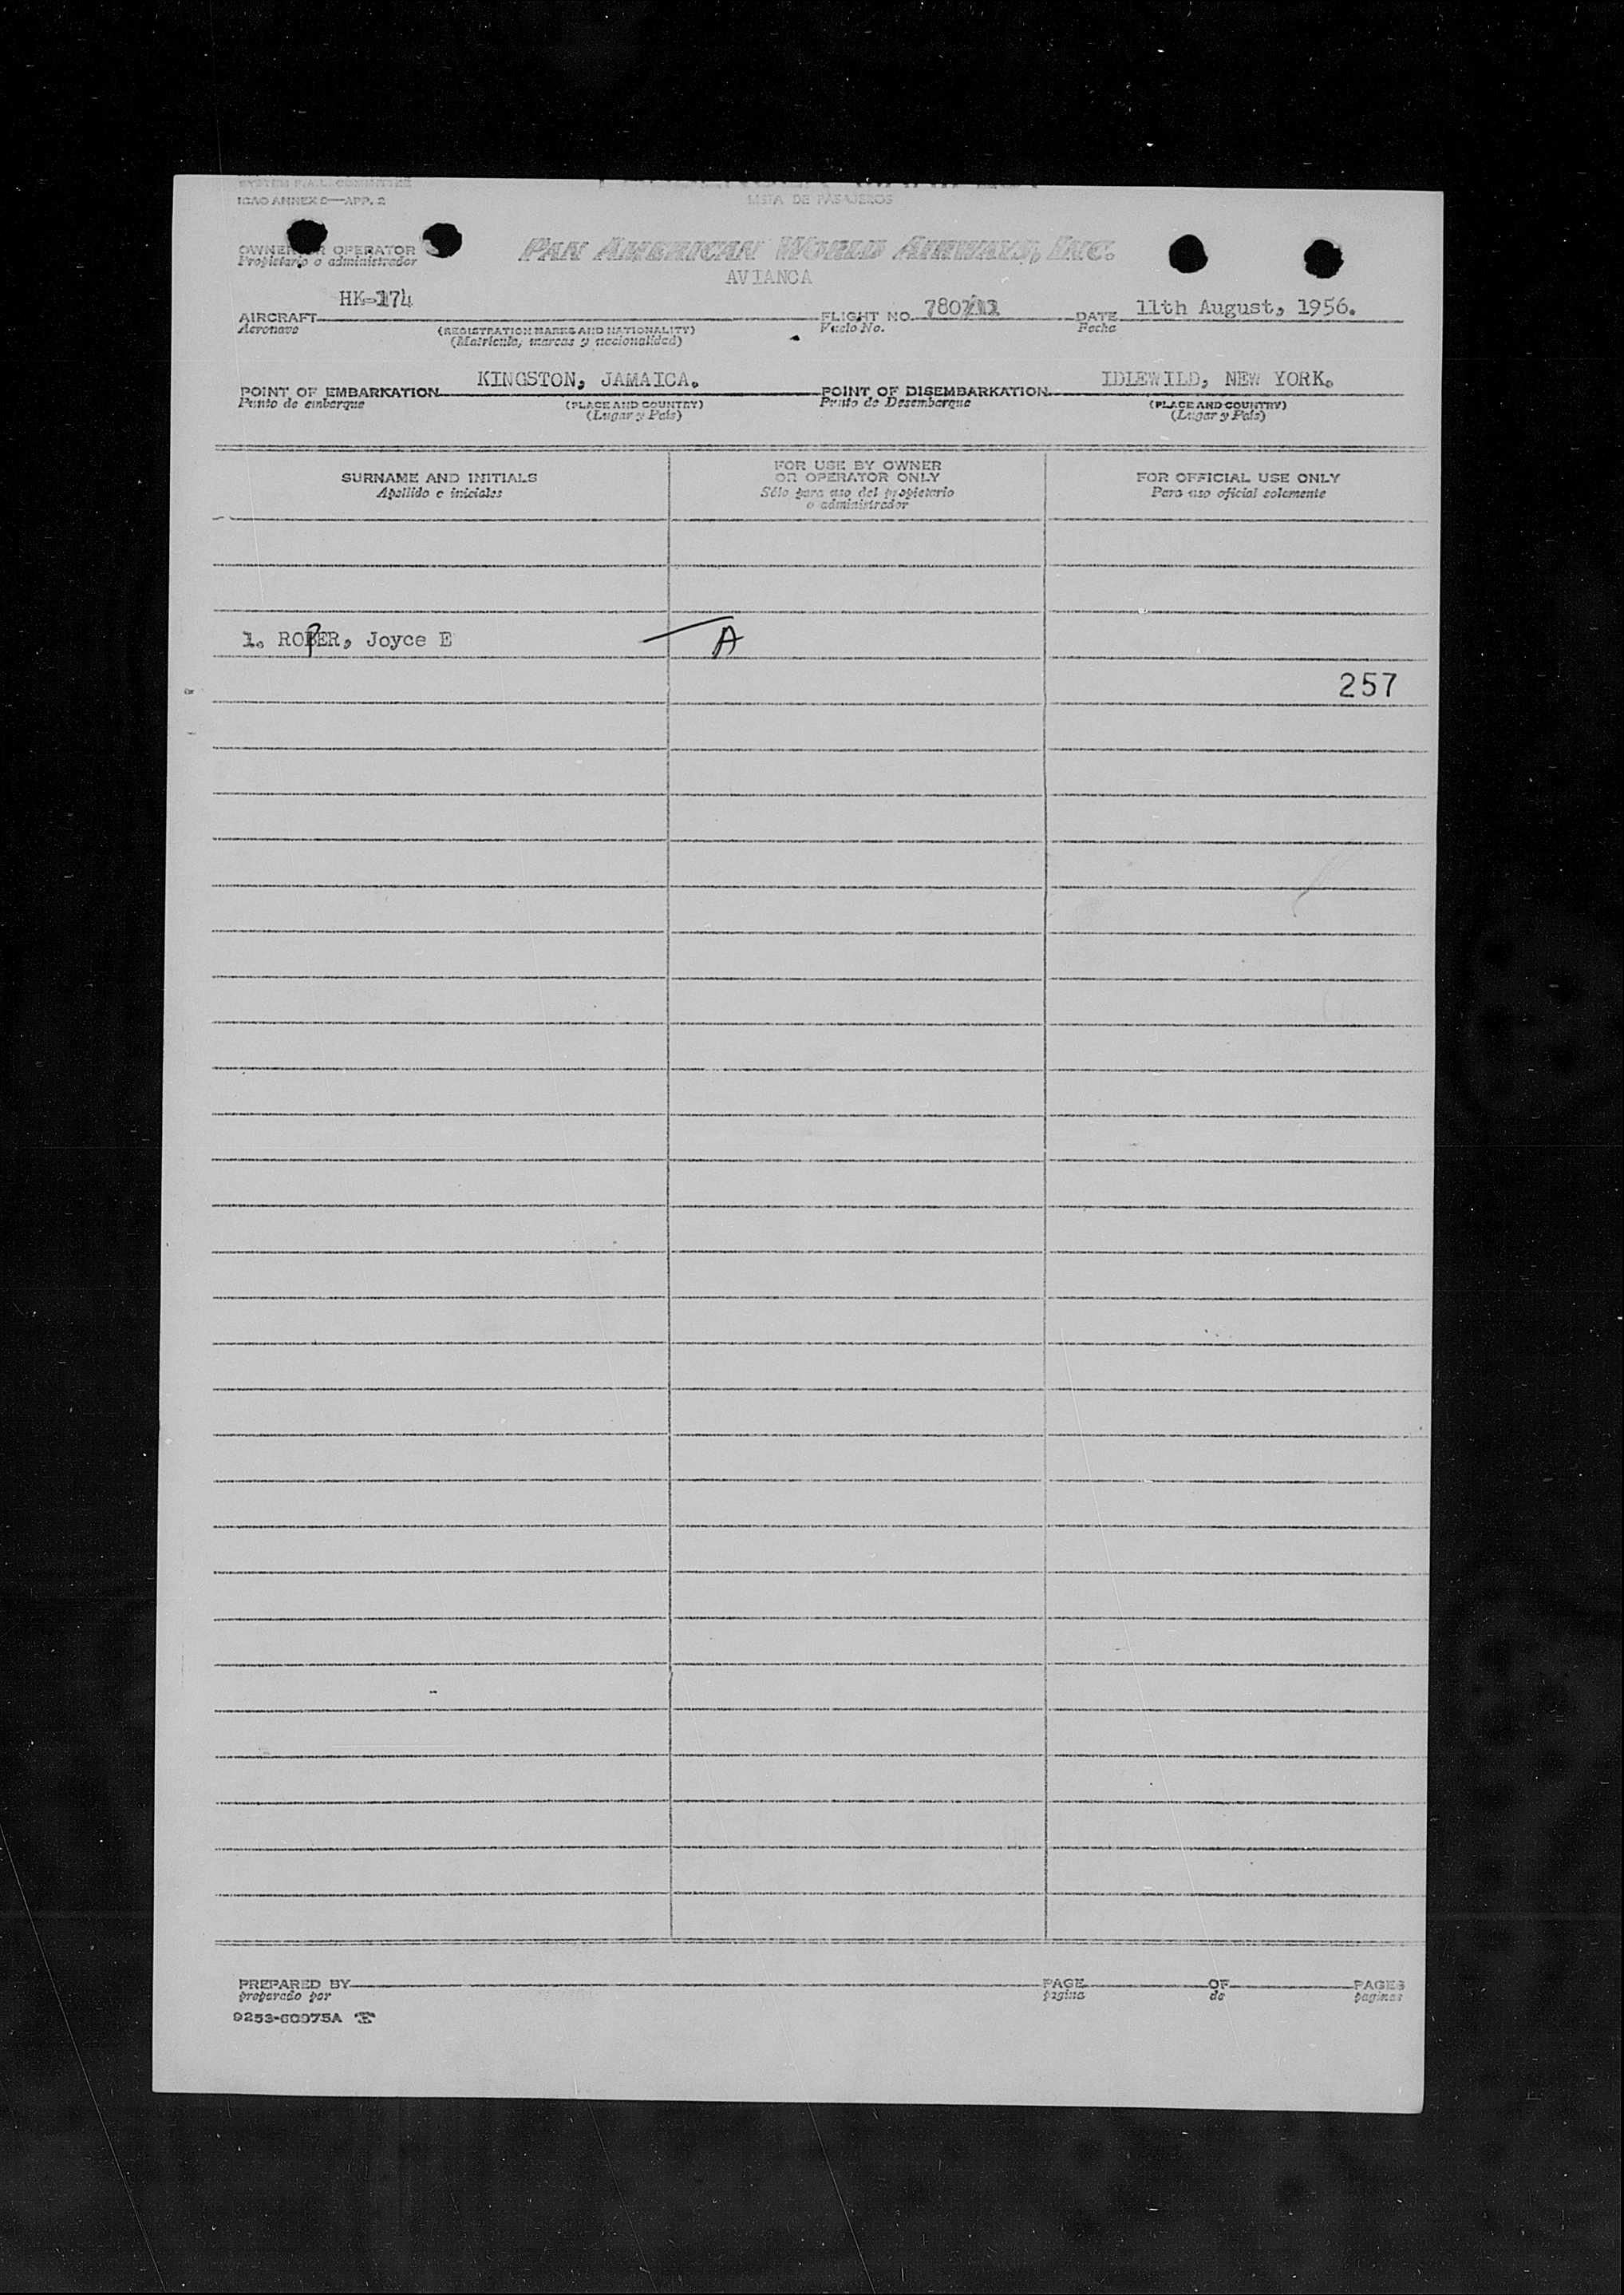 SYSTEM F.A.L. COMMITTEE
ICAO ANNEX 9—APP. 2
LISTA DE PASAJEROS
OWNER OR OPERATOR
Propietario o administrador
PAN AMERICAN WORLD AIRWAYS, INC.
AVIANCA
HK-174
AIRCRAFT
Aeronave
(REGISTRATION MARKS AND NATIONALITY)
(Matricula, marcas y nacionalidad)
FLIGHT NO.
Vuelo No.
DATE 11th August, 1956.
Fecha
POINT OF EMBARKATION KINGSTON, JAMAICA.
Punto de embarque
(PLACE AND COUNTRY)
(Lugar y País)
POINT OF DISEMBARKATION IDLEWILD, NEW YORK.
Punto de Desembarque
(PLACE AND COUNTRY)
(Lugar y País)
SURNAME AND INITIALS
Apellido e iniciales
FOR USE BY OWNER
OR OPERATOR ONLY
Sólo para uso del propietario
o administrador
FOR OFFICIAL USE ONLY
Para uso oficial solamente
1. ROPER, Joyce E
A
257
PREPARED BY
preparado por
PAGE
página
OF
de
PAGES
paginas
9253-60975A